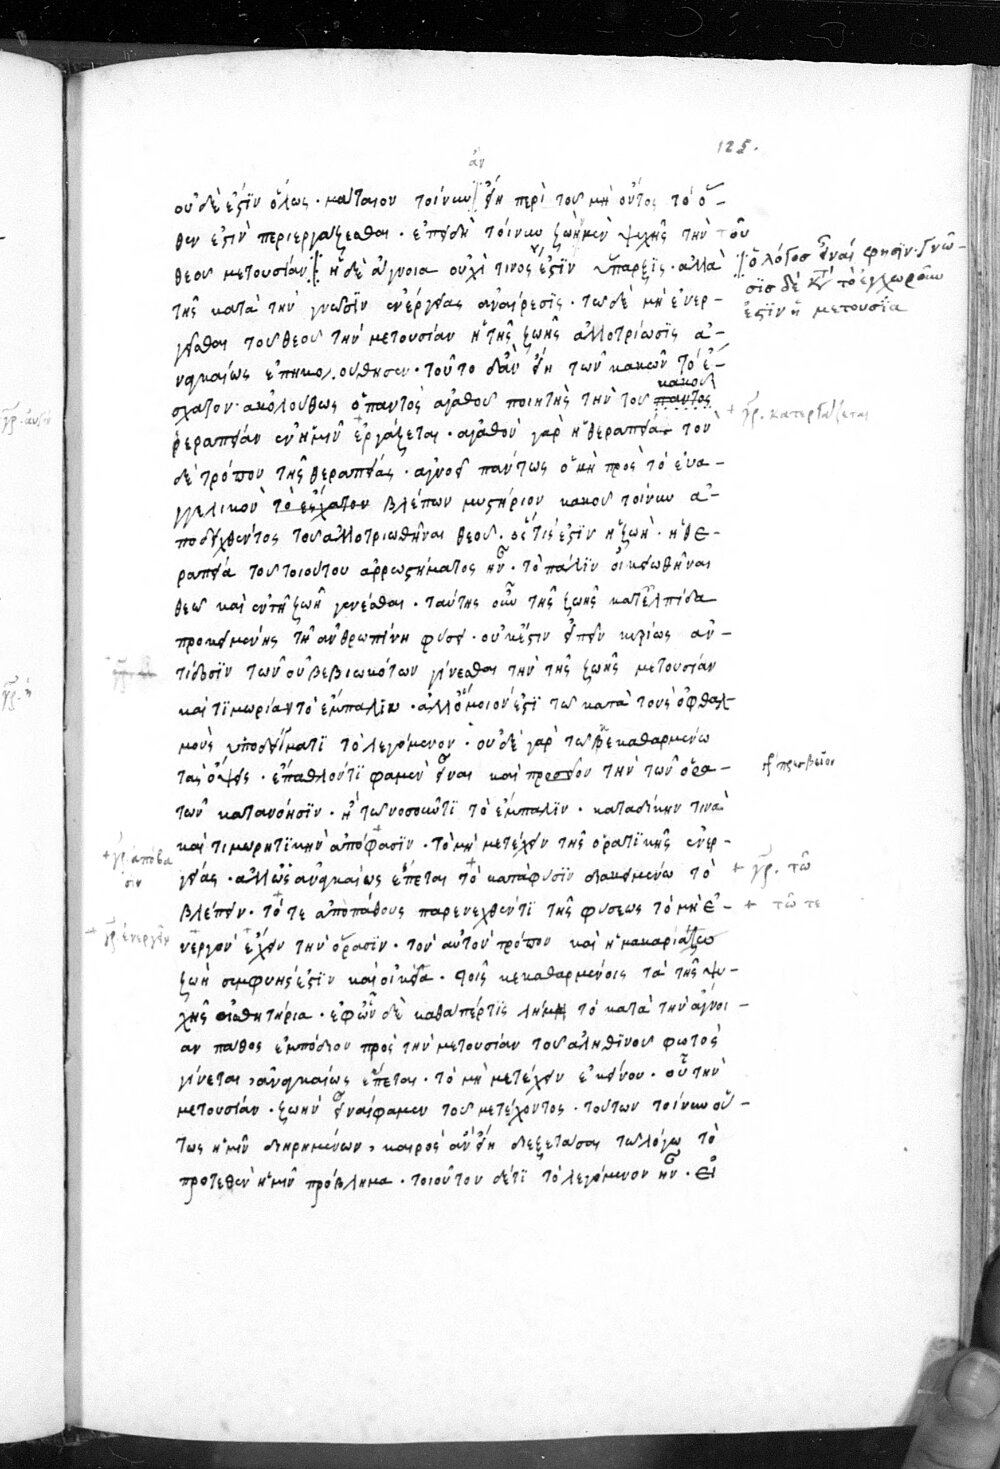 125.
ἀν
οὐδὲ ἐστὶν ὅλως · μάταιον τοίνυν ἂν εἴη περὶ τοῦ μὴ ὄντος τὸ ὅ-
θεν ἐστὶν περιεργάζεσθαι · ἐπειδὴ τοίνυν ζωὴ μὲν ψυχῆς τὴν τοῦ
θεοῦ μετουσίαν ἡ δὲ ἄγνοια οὐχί τινος ἐστὶν ὕπαρξις · ἀλλὰ
ὁ λόγος εἶναί φησιν · γνῶ-
σις δὲ κατὰ τὸ ἐγχωροῦν
ἐστὶν ἡ μετουσία
τῆς κατὰ τὴν γνῶσιν ἐνέργείας ἀναίρεσις · τῶ δὲ μὴ ἐνερ-
γεῖσθαι τοῦ θεοῦ τὴν μετουσίαν ἡ τῆς ζωῆς ἀλλοτρίωσις ἀ-
ναγκαίως ἐπηκολούθησεν · τοῦτο δ' ἂν εἴη τῶν κακῶν τὸ ἔ-
σχατον · ἀκολούθως ὁ παντὸς ἀγαθοῦ ποιητὴς τὴν τοῦ παντὸς
κακοῦ
+ γρ. κατεργάζεται
θεραπείαν ἐν ἡμῖν ἐργάζεται · ἀγαθὸν γὰρ ἡ θεραπεία · τὸν
δὲ τρόπον τῆς θεραπείας · ἀγνοεῖ πάντως ὁ μὴ πρὸς τὸ εὐα-
γγελικὸν τὸ ἔσχατον βλέπων μυστήριον κακοῦ τοίνυν ἀ-
ποδειχθέντος τοῦ ἀλλοτριωθῆναι θεοῦ · ὅς τις ἐστὶν ἡ ζωὴ · ἡ θε-
ραπεία τοῦ τοιούτου ἀρρωστήματος ἦν · τὸ πάλιν οἰκειωθῆναι
θεῶ καὶ ἐν τῆ ζωῆ γενέσθαι · ταύτης οὖν τῆς ζωῆς κατ' ἐλπίδα
προκειμένης τῆ ἀνθρωπίνη φύσει · οὐκ ἔστιν εἰπεῖν κυρίως ἀν-
τίδοσιν τῶν εὖ βεβιωκότων γίνεσθαι τὴν τῆς ζωῆς μετουσίαν
καὶ τιμωρίαν τὸ ἔμπαλιν · ἀλλ' ὅμοιον ἐστὶ τῶ κατὰ τοὺς ὀφθαλ-
μοὺς ὑποδείγματι τὸ λεγόμενον · οὐδὲ γὰρ τῶ κεκαθαρμένω
τὰς ὄψεις · ἔπαθλόν τι φαμὲν εἶναι καὶ πρεσβεῖον τὴν τῶν ὁρα-
πρεσβεῖον
τῶν κατανόησιν · ἢ τῶ νοσοῦντι τὸ ἔμπαλιν · καταδίκην τινὰ
καὶ τιμωρητικὴν ἀπόφασιν · τὸ μὴ μετέχειν τῆς ὁρατικῆς ἐνερ-
+ γρ. ἀπόβα
σιν
γείας · ἀλλ' ὡς ἀναγκαίως ἕπεται τὸ κατὰ φύσιν διακειμένω τὸ
+ γρ. τῶ
βλέπειν · τό τε ἀπὸ πάθους παρενεχθέντι τῆς φύσεως τὸ μὴ ἐ-
+ τῶ τε
νεργὸν ἔχειν τὴν ὅρασιν · τὸν αὐτὸν τρόπον καὶ ἡ μακαρία
+ γρ. ἐνεργεῖν
ζωὴ συμφυής ἐστιν καὶ οἰκεία · τοῖς κεκαθαρμένοις τὰ τῆς ψυ-
χῆς αἰσθητήρια · ἐφ' ὧν δὲ καθάπερ τις λήμη τὸ κατὰ τὴν ἄγνοι-
αν πάθος ἐμπόδιον πρὸς τὴν μετουσίαν τοῦ ἀληθινοῦ φωτὸς
γίνεται, ἀναγκαίως ἕπεται · τὸ μὴ μετέχειν ἐκείνου · οὗ τὴν
μετουσίαν · ζωὴν εἶναί φαμεν τοῦ μετέχοντος · τούτων τοίνυν οὕ-
τως ἡμῖν διηρημένων, καιρὸς ἂν εἴη διεξετάσαι τῶ λόγω τὸ
προτεθὲν ἡμῖν πρόβλημα · τοιοῦτον δέ τι τὸ λεγόμενον ἦν · εἰ